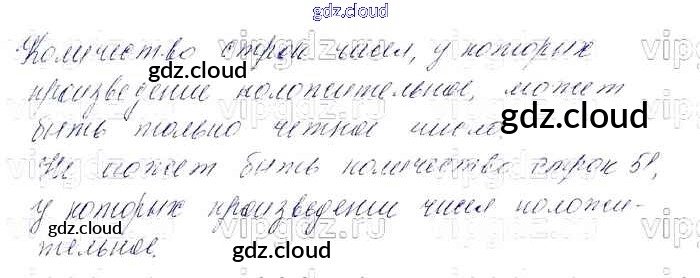 gdz.cloud
Количество строк чисел, у которых
произведение положительное, может
быть только четное число
Не может быть количество строк 51,
у которых произведение чисел положи-
тельное.
gdz.cloud
gdz.cloud
gdz.cloud
gdz.cloud
gdz.cloud
gdz.cloud
gdz.cloud